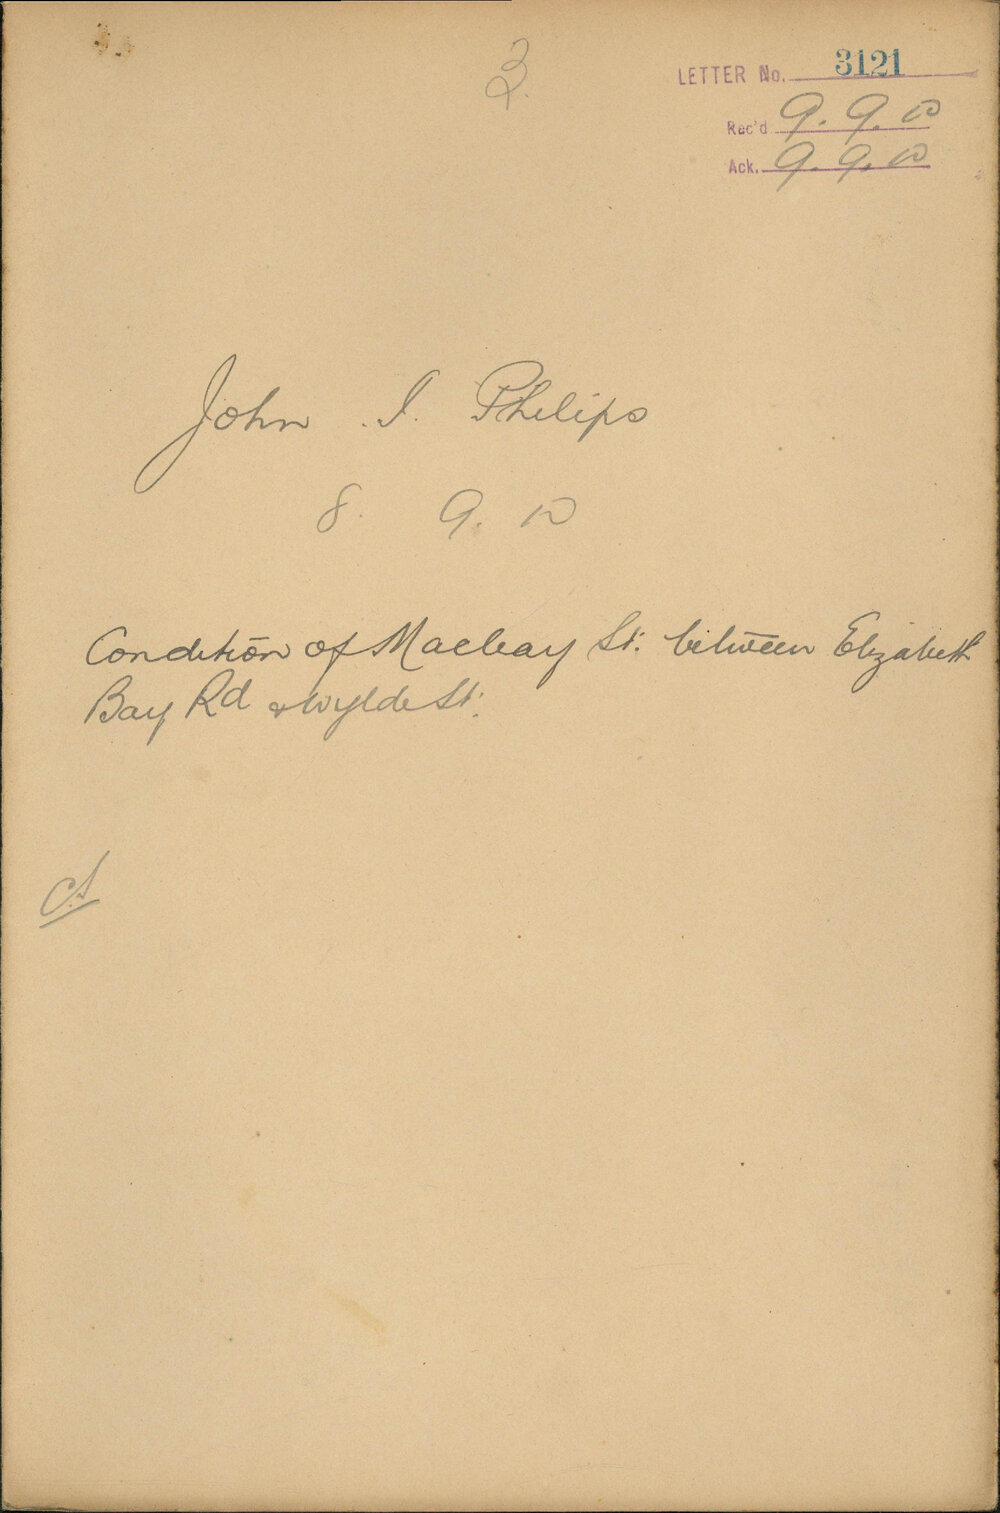 3.
LETTER No. 3121
Rec'd 9. 9. 10
Ack. 9. 9. 10
John . I. Philips
8. 9. 10
Condition of Macleay St. between Elizabeth
Bay Rd & Wylde St.